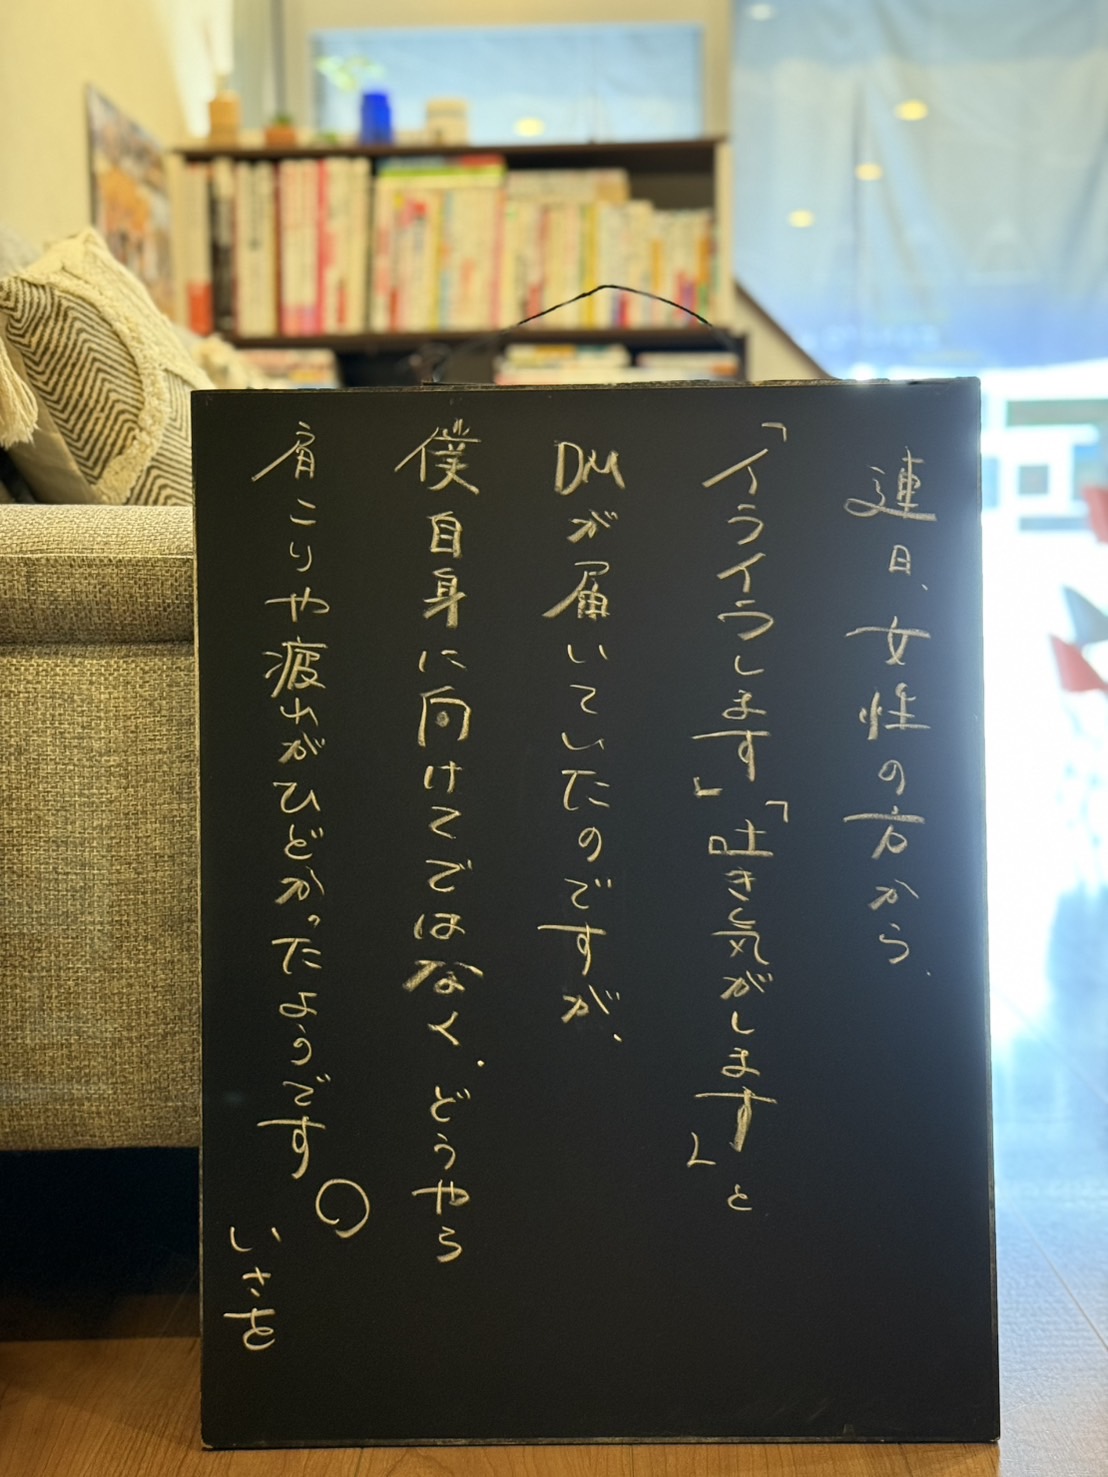 連日、女性の方から、
「イライラします」「吐き気がします」と
DMが届いていたのですが、
僕自身に向けてではなく、どうやら
肩こりや疲れがひどかったようです。
いさを